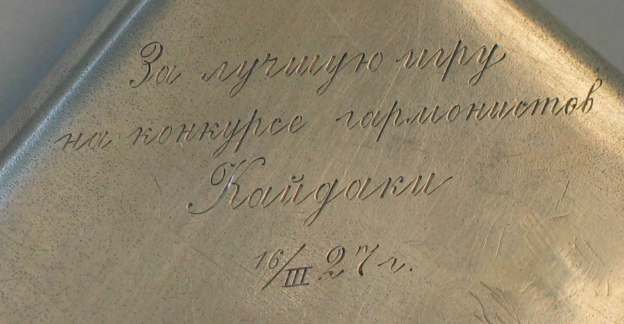 За лучшую игру
на конкурсе гармонистов
Кайдаки
16/III 27 г.